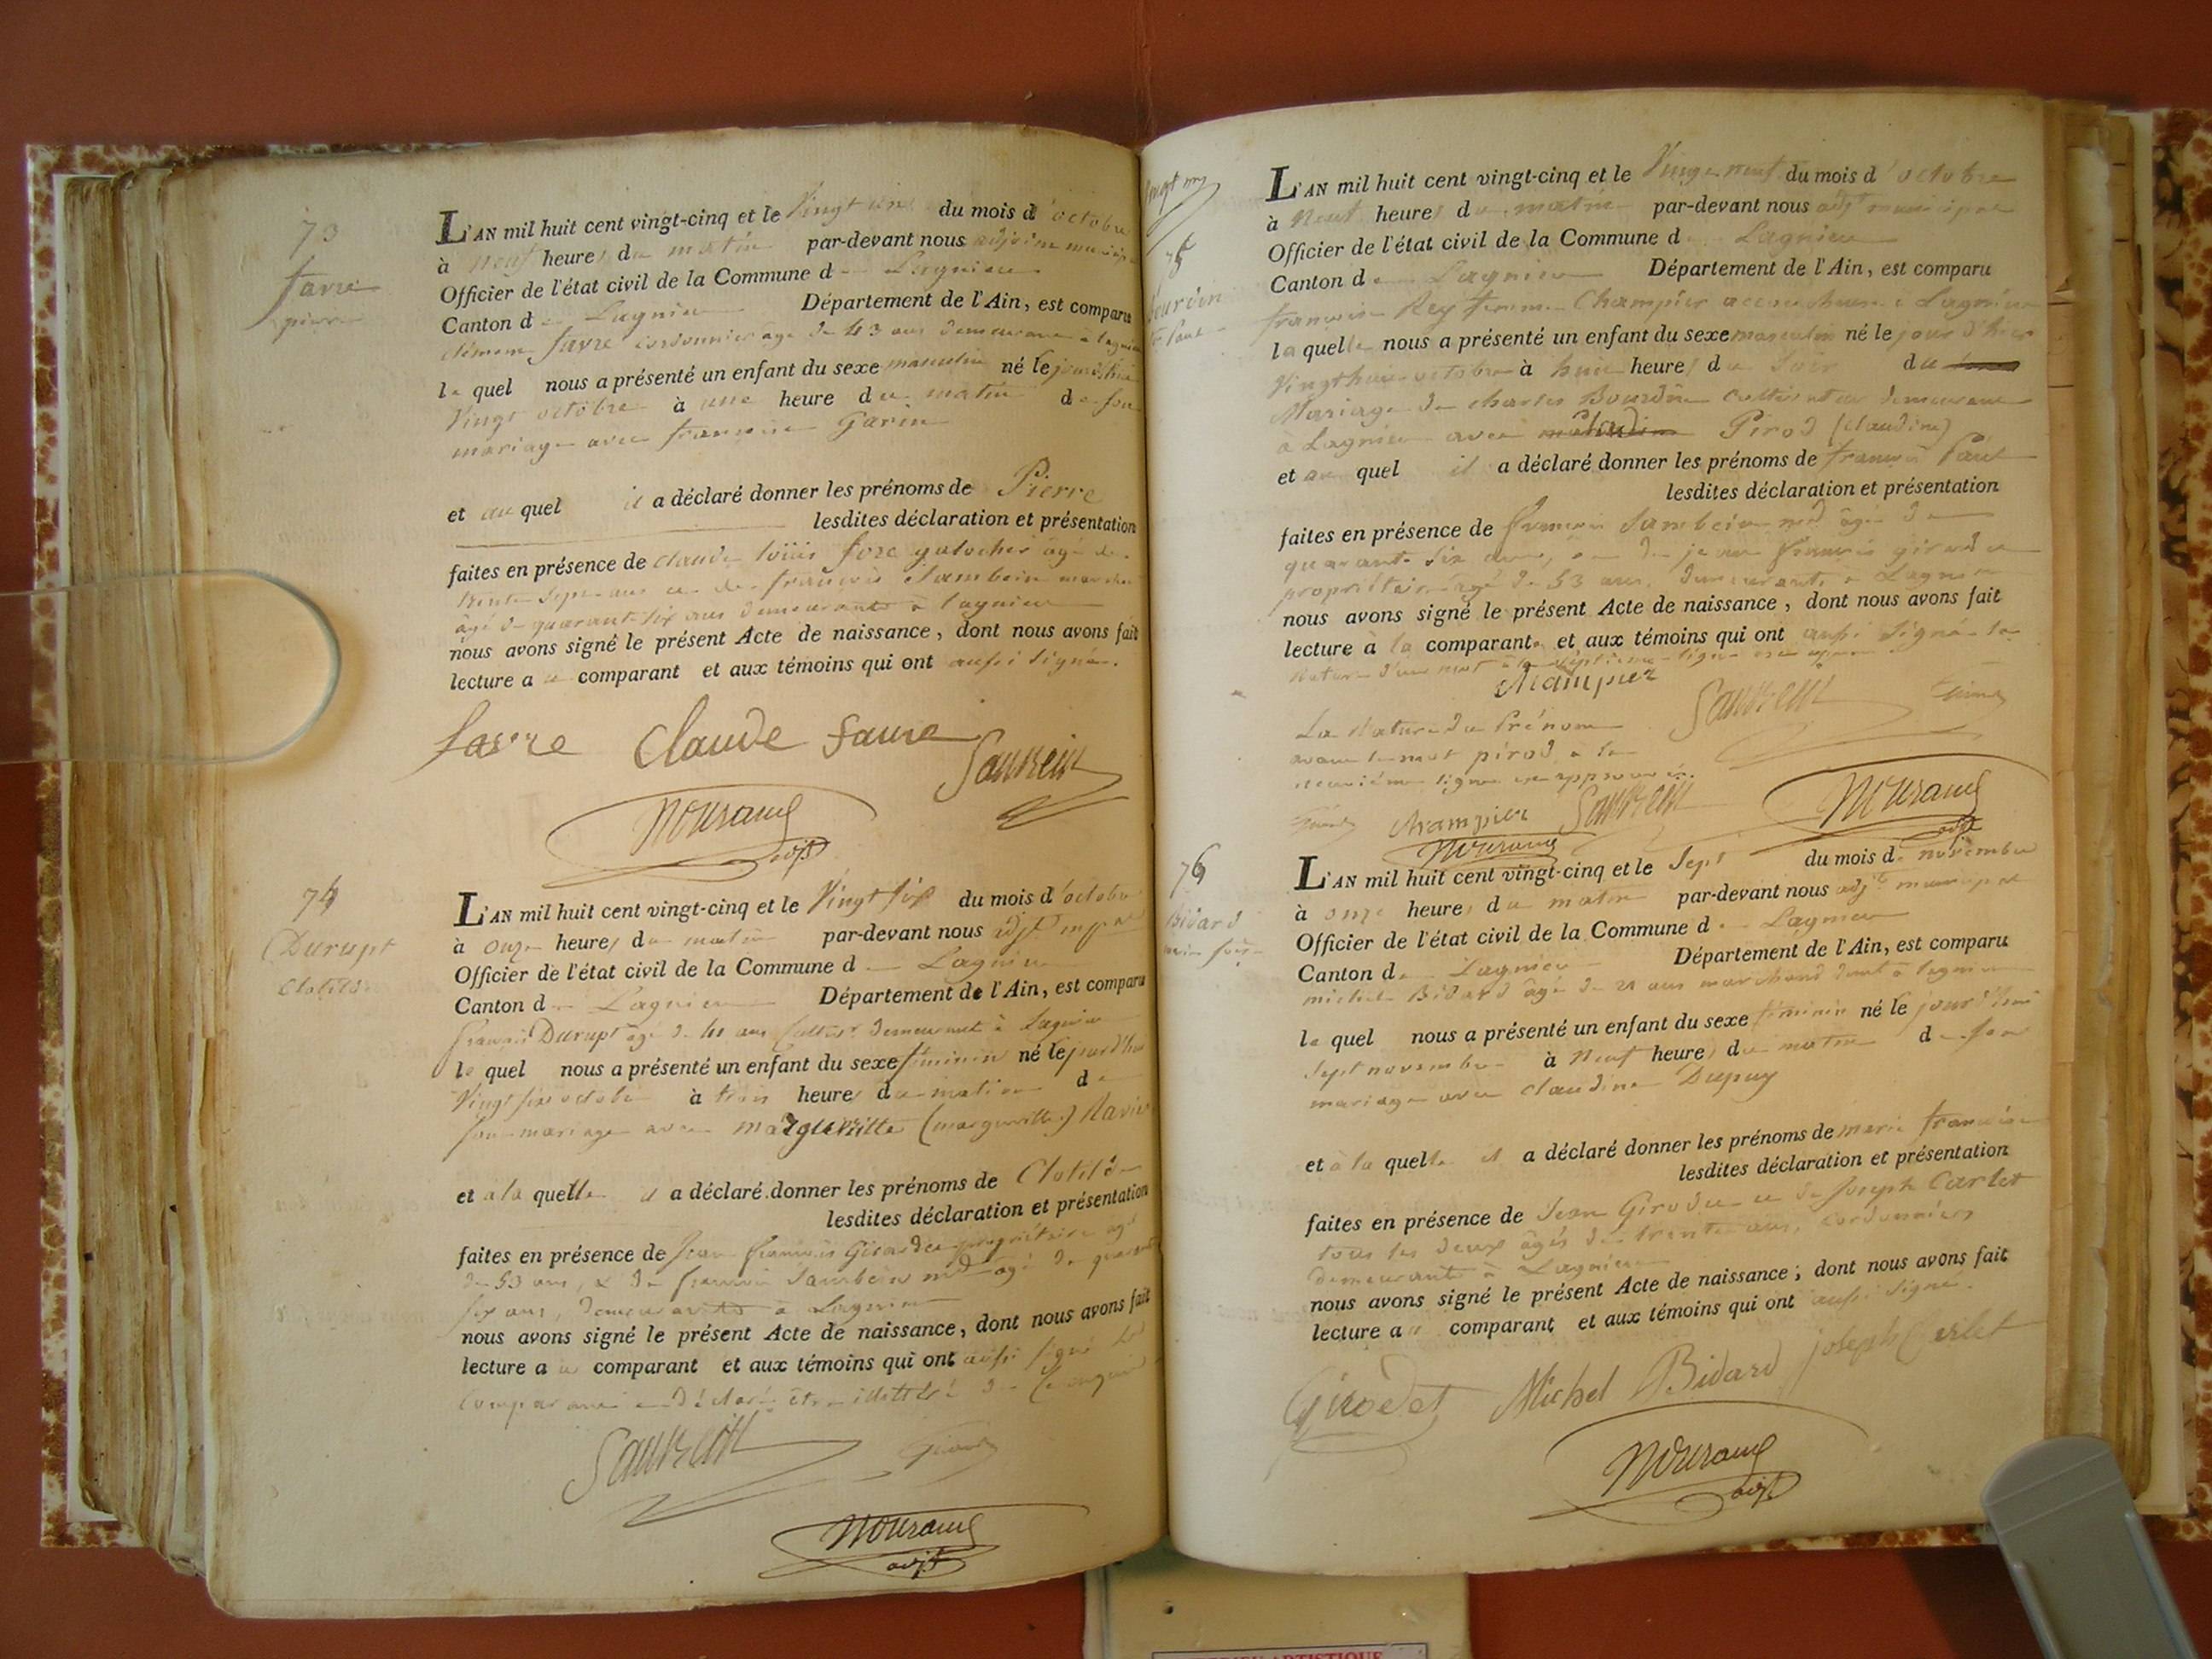 73
favre
pierre
L'AN mil huit cent vingt-cinq et le Vingt un du mois d'octobre
à neuf heures du matin par-devant nous adjoint municip
Officier de l'état civil de la Commune de Lagnieu
Canton de Lagnieu Département de l'Ain, est comparu
clément favre cordonnier agé de 43 ans demeurant à lagnieu
le quel nous a présenté un enfant du sexe masculin né le jour d'hier
Vingt octobre à une heure du matin de son
mariage avec françoise Garin
et au quel il a déclaré donner les prénoms de Pierre
lesdites déclaration et présentation
faites en présence de claude louis galocher âgé de
trente sept ans et de françois
âgé de quarante six ans demeurants à lagnieu
nous avons signé le présent Acte de naissance, dont nous avons fait
lecture au comparant et aux témoins qui ont aussi signé.
favre Claude Favre
74
Durupt
Clotilde
L'AN mil huit cent vingt-cinq et le Vingt six du mois d'octobre
à onze heures du matin par-devant nous adjt mpal
Officier de l'état civil de la Commune de Lagnieu
Canton de Lagnieu Département de l'Ain, est comparu
françois Durupt âgé de 41 ans demeurant à Lagnieu
le quel nous a présenté un enfant du sexe féminin né le jourd'hui
Vingt six octobre à trois heures du matin de
son mariage avec margueritte (margueritte) Ravier
et à la quelle il a déclaré donner les prénoms de Clotilde
lesdites déclaration et présentation
faites en présence de Jean françois propriétaire agé
de 53 ans, & de françois md âgé de quarante
six ans, demeurants à Lagnieu
nous avons signé le présent Acte de naissance, dont nous avons fait
lecture au comparant et aux témoins qui ont aussi signé le
comparant a Déclaré être illettré de ce enquis
adjt
75
Bourdin
L'AN mil huit cent vingt-cinq et le Vingt neuf du mois d'octobre
à Neuf heures du matin par-devant nous adjt municipal
Officier de l'état civil de la Commune de Lagnieu
Canton de Lagnieu Département de l'Ain, est comparu
françoise Rey femme Champier accoucheuse à Lagnieu
laquelle nous a présenté un enfant du sexe masculin né le jour d'hier
Vingt huit octobre à huit heures du soir du
Mariage de charles Bourdin cultivateur demeurant
à Lagnieu avec Pirod (claudine)
et au quel il a déclaré donner les prénoms de françois Paul
lesdites déclaration et présentation
faites en présence de françois md âgé de
quarante six ans, et de jean françois
propriétaire âgé de 53 ans, demeurants à Lagnieu
nous avons signé le présent Acte de naissance, dont nous avons fait
lecture à la comparante et aux témoins qui ont aussi signé la
Rature d'un mot à la septième ligne est
Champier
La Rature du Prénom
avant le mot pirod à la
neuvième ligne est approuvée.
Champier
adjt
76
Bidard
L'AN mil huit cent vingt-cinq et le Sept du mois de novembre
à onze heures du matin par-devant nous adjt municipal
Officier de l'état civil de la Commune de Lagnieu
Canton de Lagnieu Département de l'Ain, est comparu
michel Bidard âgé de 21 ans marchand demt à lagnieu
le quel nous a présenté un enfant du sexe féminin né le jourd'hui
Sept novembre à Neuf heures du matin de son
mariage avec claudine Dupuy
et à la quelle il a déclaré donner les prénoms de marie françoise
lesdites déclaration et présentation
faites en présence de Jean Girodet et de Joseph Carlet
tous les deux âgés de trente ans, cordonniers
demeurants à Lagnieu
nous avons signé le présent Acte de naissance; dont nous avons fait
lecture au comparant et aux témoins qui ont aussi signé.
Girodet Michel Bidard joseph Carlet
adjt